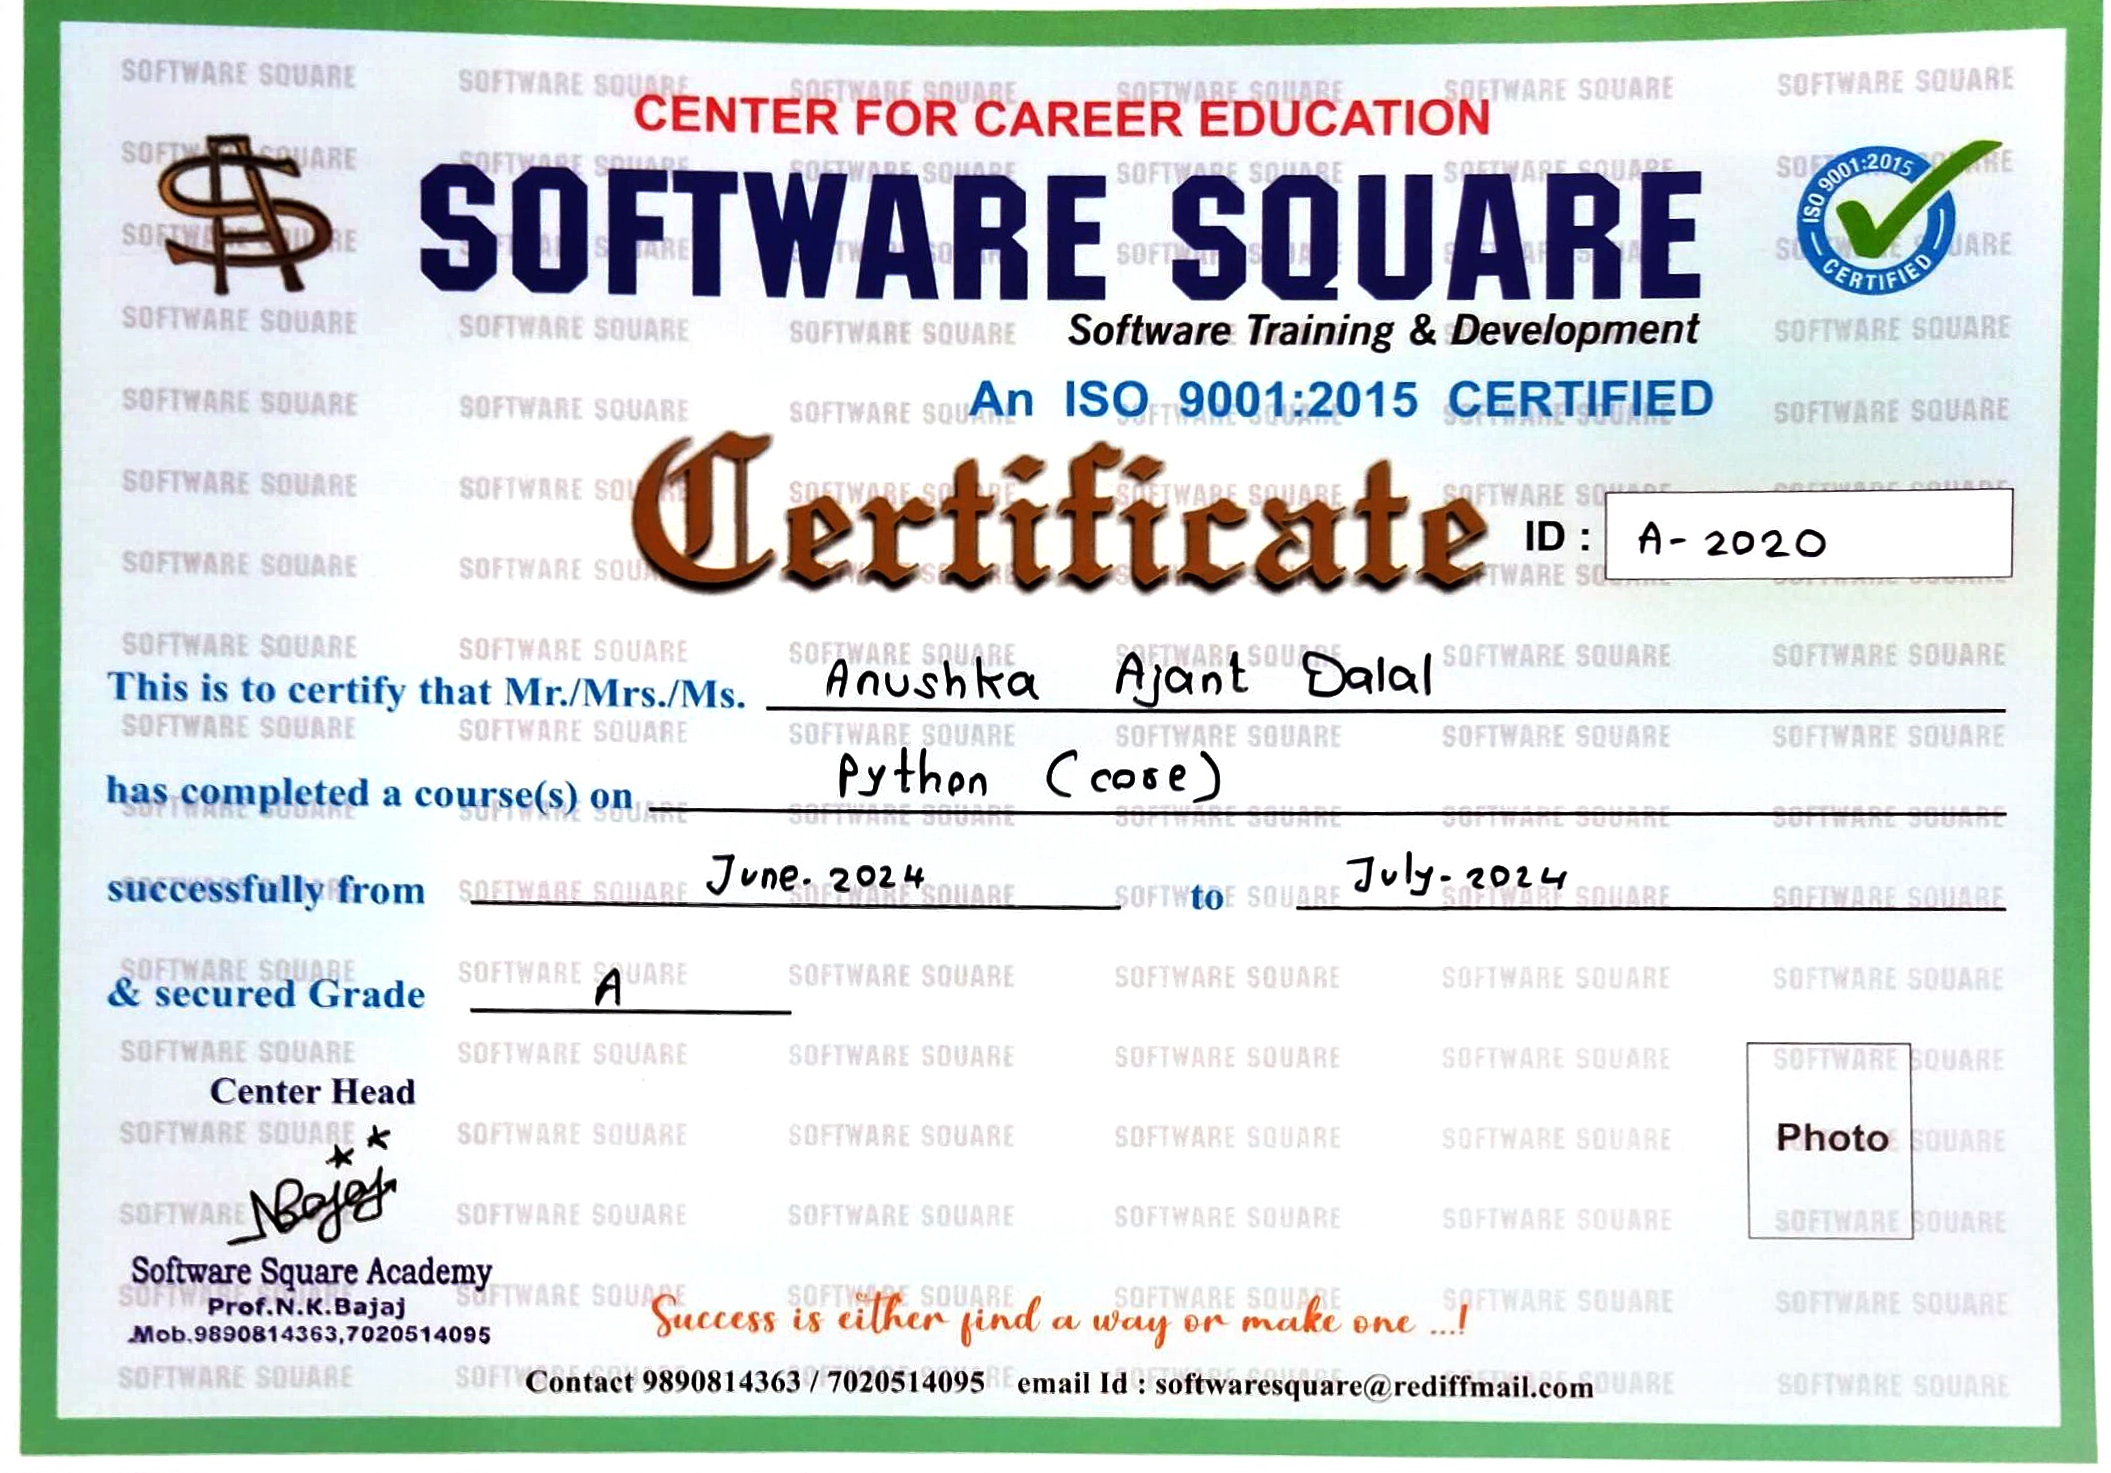 CENTER FOR CAREER EDUCATION
SOFTWARE SQUARE
Software Training & Development
An ISO 9001:2015 CERTIFIED
ISO 9001:2015 CERTIFIED
Certificate
ID : A-2020
This is to certify that Mr./Mrs./Ms. Anushka Ajant Dalal
has completed a course(s) on Python (core)
successfully from June-2024 to July-2024
& secured Grade A
Center Head
NBajaj
Photo
Software Square Academy
Prof.N.K.Bajaj
Mob.9890814363,7020514095
Success is either find a way or make one ...!
Contact 9890814363 / 7020514095 email Id : softwaresquare@rediffmail.com